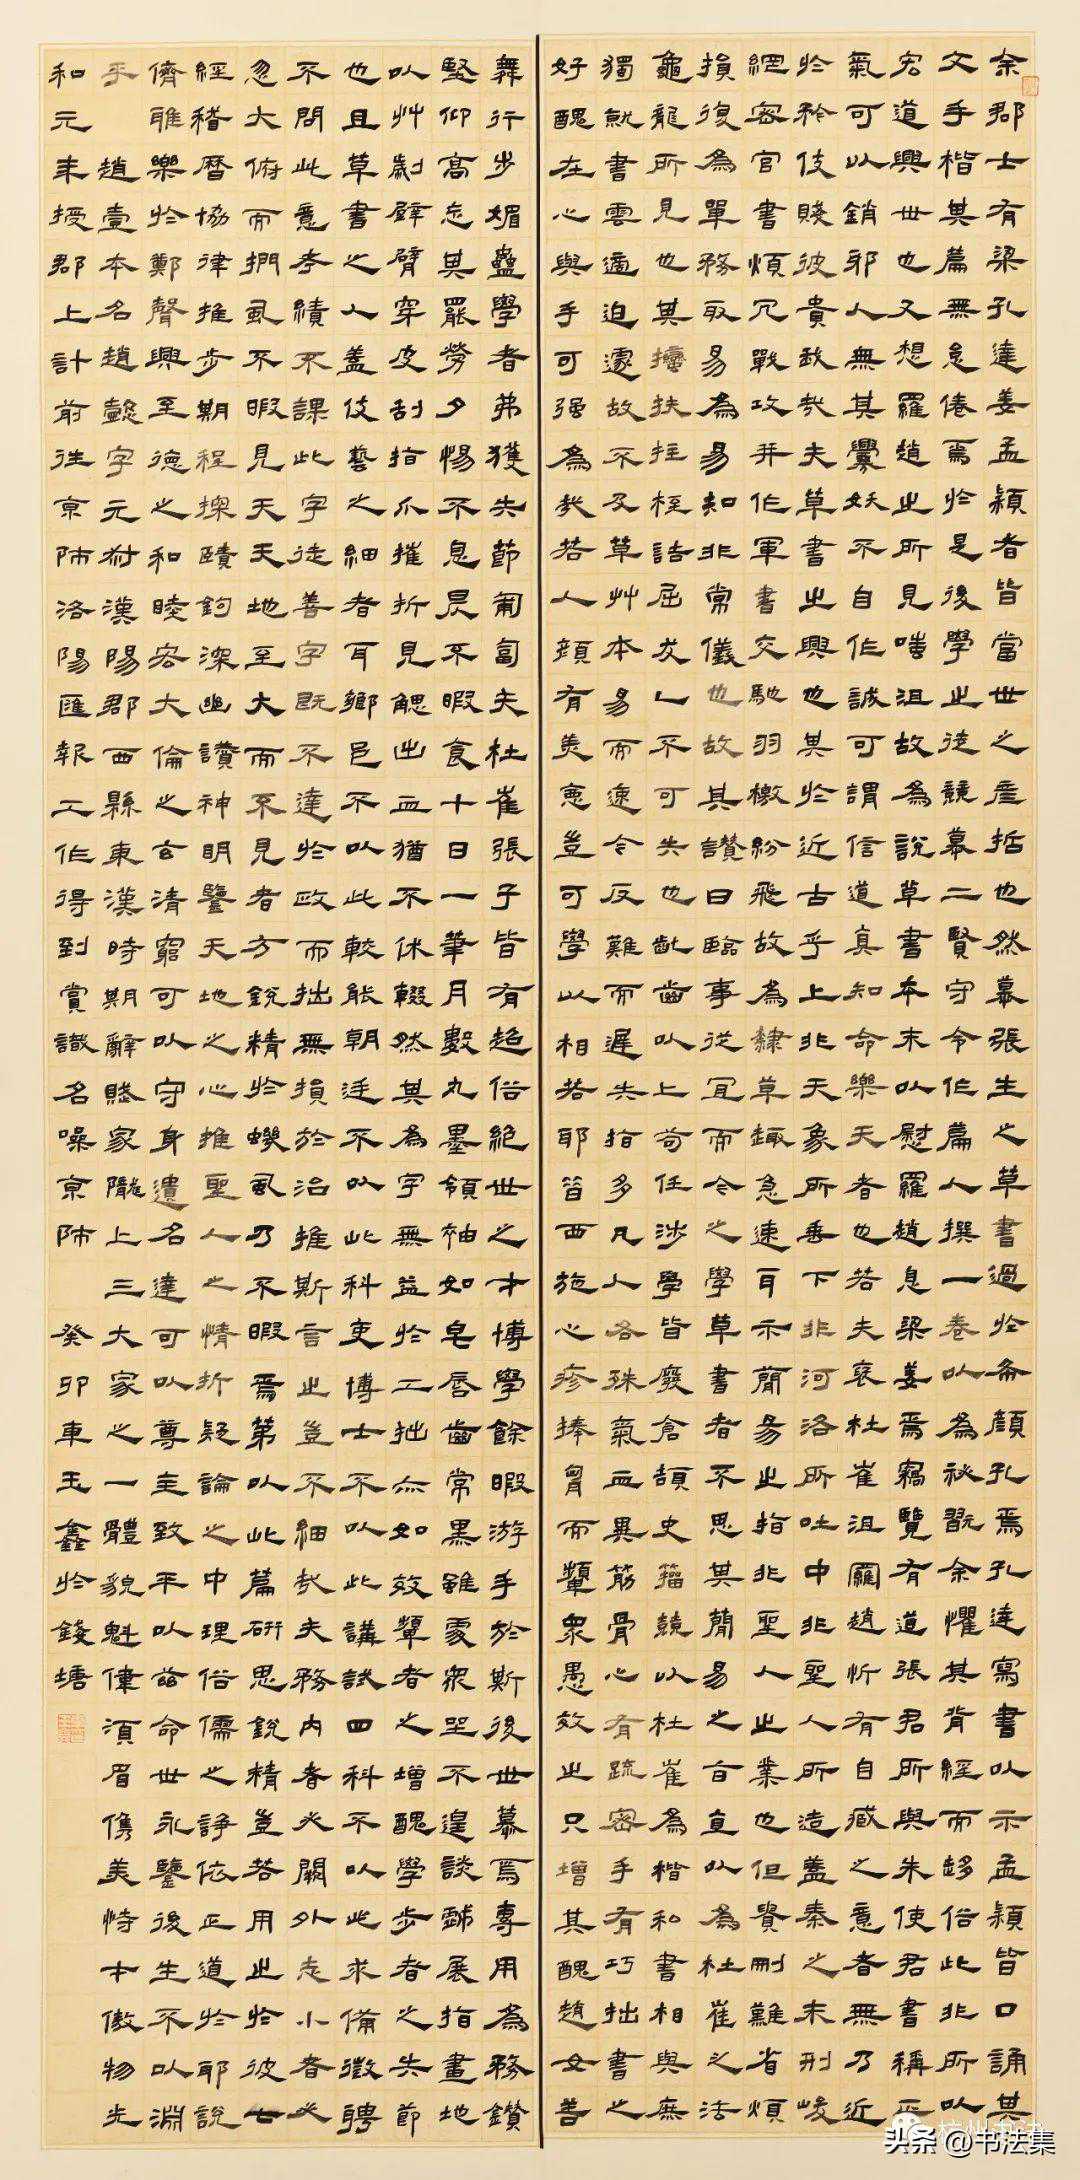 余郡士有梁孔達姜孟穎者皆當世之彥哲也然慕張生之草書過於希顏孔焉孔達寫書以示孟穎皆口誦其
文手楷其篇無怠倦焉於是後學之徒競慕二賢守令作篇人撰一卷以為祕翫余懼其背經而趍俗此非所以
宏道興世也又想羅趙之所見嗤沮故為說草書本末以慰羅趙息梁姜焉竊覽有道張君所與朱使君書稱正
氣可以銷邪人無其釁妖不自作誠可謂信道真知命樂天者也若夫褒杜崔沮羅趙忻有自臧之意者無乃近
於矜伎賤彼貴我哉夫草書之興也其於近古乎上非天象所垂下非河洛所吐中非聖人所造蓋秦之末刑峻
網密官書煩冗戰攻并作軍書交馳羽檄紛飛故為隸草趣急速耳示簡易之指非聖人之業也但貴刪難省煩
損復為單務取易為易知非常儀也故其讚曰臨事從宜而今之學草書者不思其簡易之旨直以為杜崔之法
龜龍所見也其扶拄桎詰屈叐乚不可失也齔齒以上苟任涉學皆廢倉頡史籀競以杜崔為楷和書相與庶
獨就書雲適迫遽故不及草艸本易而速今反難而遲失指多凡人各殊氣血異筋骨心有疏密手有巧拙書之
好醜在心與手可强為哉若人顏有美惡豈可學以相若耶昔西施心疹捧胷而顰眾愚效之只增其醜趙女善
舞行步媚蠱學者弗獲失節匍匐夫杜崔張子皆有超俗絕世之才博學餘暇游手於斯後世慕焉專用為務鑽
堅仰高忘其罷勞夕惕不息昃不暇食十日一筆月數丸墨領袖如皂唇齒常黑雖處眾坐不遑談戲展指畫地
以艸劌壁臂穿皮刮指爪摧折見䚡出血猶不休輟然其為字無益於工拙亦如效顰者之增醜學步者之失節
也且草書之人蓋伎藝之細者耳鄉邑不以此較能朝廷不以此科吏博士不以此講試四科不以此求備徵聘
不問此意考績不課此字徒善字既不達於政而拙無損於治推斯言之豈不細哉夫務內者必闕外志小者必
忽大俯而捫虱不暇見天天地至大而不見者方銳精於蟣虱乃不暇焉第以此篇研思銳精豈若用之於彼七
經稽曆協律推步期程探賾鉤深幽讚神明鑒天地之心推聖人之情折疑論之中理俗儒之諍依正道於耶說
儕雅樂於鄭聲興至德之和睦宏大倫之玄清窮可以守身遺名達可以尊主致平以茲命世永鑒後生不以淵
乎 趙壹本名趙懿字元叔漢陽郡西縣東漢時期辭賦家隴上三大家之一體貌魁偉須眉儁美恃才傲物光
和元年授郡上計前往京師洛陽匯報工作得到賞識名噪京師 癸卯車玉鑫於錢塘
杭州书法
头条 @书法集